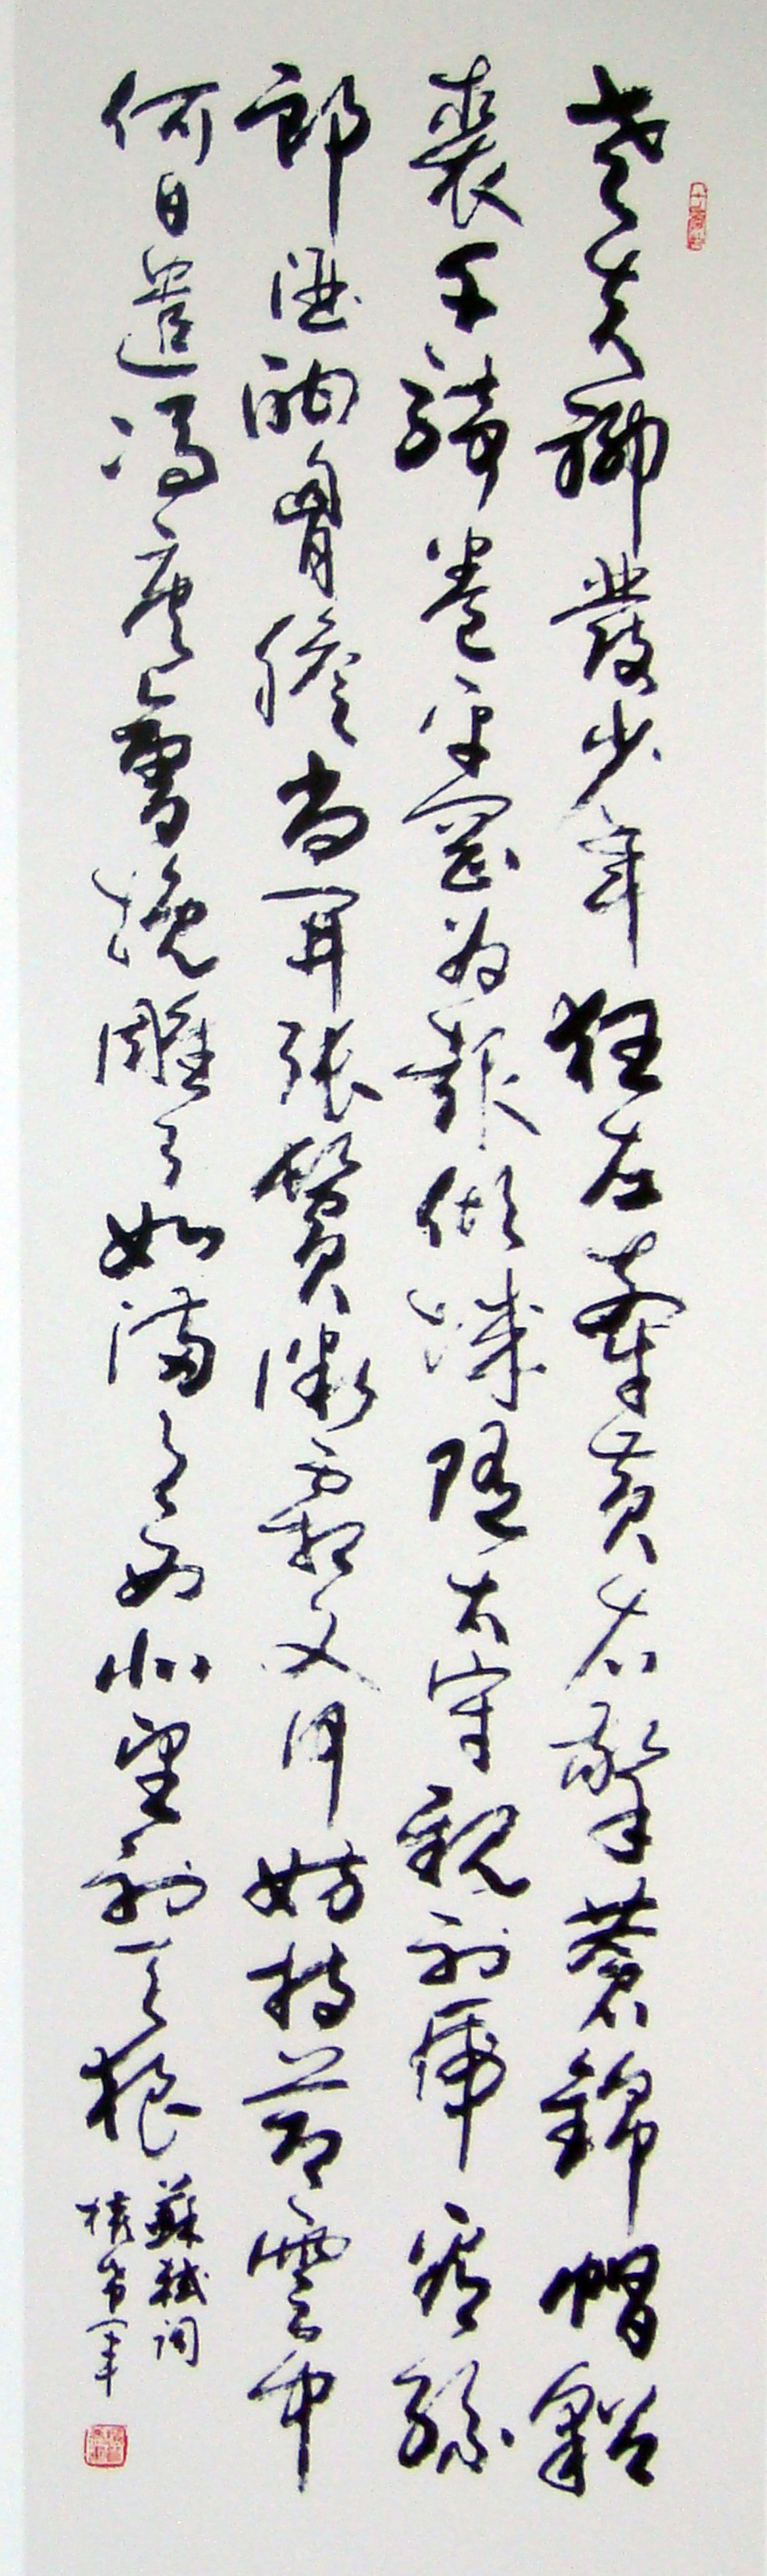 老夫聊發少年狂左牽黃右擎蒼錦帽貂
裘千騎卷平岡為報傾城隨太守親射虎看孫
郎酒酣胸膽尚開張鬢微霜又何妨持節雲中
何日遣馮唐會挽雕弓如滿月西北望射天狼
蘇軾詞
軍